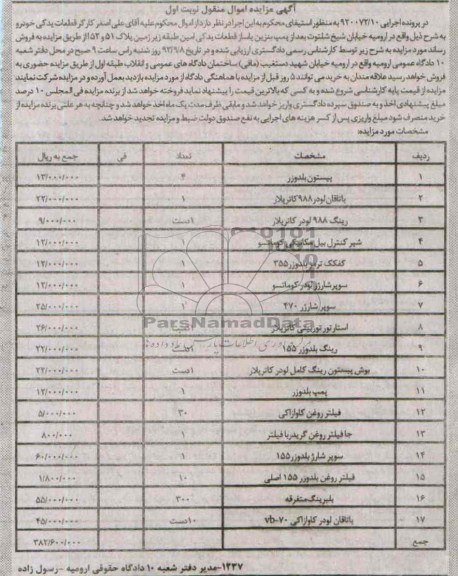 آگهی مزایده اموال منقول نوبت اول
در پرونده اجرایی ۹۲۰۰۷۲/۱۰ به منظور استیفای محکوم به این اجرا در نظر دارد اموال محکوم علیه آقای علی اصغر کارگر قطعات یدکی خودرو
به شرح ذیل واقع در ارومیه خیابان شیخ شلتوت بعد از پمپ بنزین پاساژ قطعات یدکی امین طبقه زیر زمین پلاک ۵۱ و ۵۲ از طریق مزایده به فروش
رساند مورد مزایده به شرح زیر توسط کارشناس رسمی دادگستری ارزیابی شده و در تاریخ ۹۲/۹/۸ روز شنبه راس ساعت ۹ صبح در محل دفتر شعبه
۱۰ دادگاه عمومی ارومیه واقع در ارومیه خیابان شهید دستغیب (مافی) ساختمان دادگاه های عمومی و انقلاب طبقه اول از طریق مزایده حضوری به
فروش خواهد رسید علاقه مندان به خرید می توانند ۵ روز قبل از مزایده با هماهنگی دادگاه از مورد مزایده بازدید بعمل آورده و در مزایده شرکت نمایند
مزایده از قیمت پایه کارشناسی شروع شده و به کسی که بالاترین قیمت را پیشنهاد نماید فروخته خواهد شد از برنده مزایده فی المجلس ۱۰ درصد
مبلغ پیشنهادی اخذ و به صندوق سپرده دادگستری واریز خواهد شد و مابقی ظرف مدت یک ماه اخذ خواهد شد و چنانچه به هر علتی برنده مزایده از
خرید منصرف شود مبلغ واریزی پس از کسر هزینه های اجرایی به نفع صندوق دولت ضبط و مزایده تجدید خواهد شد.
مشخصات مورد مزایده:
ردیف مشخصات تعداد فی جمع به ریال
۱ پیستون بلدوزر ۴ ۱۳/۰۰۰/۰۰۰
۲ یاتاقان لودر ۹۸۸ کاترپلار ۱ ۲۲/۰۰۰/۰۰۰
۳ رینگ ۹۸۸ لودر کاترپلار ۱دست ۹/۰۰۰/۰۰۰
۴ شیر کنترل بیل مکانیکی کوماتسو ۱ ۱۲/۰۰۰/۰۰۰
۵ کفکک ترمز بلدوزر ۳۵۵ ۱ ۱۲/۰۰۰/۰۰۰
۶ سوپر شارژ لودر کوماتسو ۱ ۱۲/۰۰۰/۰۰۰
۷ سوپر شارژر ۴۷۰ ۱ ۲۵/۰۰۰/۰۰۰
۸ استارتور توربینی کاترپلار ۲۶/۰۰۰/۰۰۰
۹ رینگ بلدوزر ۱۵۵ ۱دست ۲۲/۰۰۰/۰۰۰
۱۰ بوش پیستون رینگ کامل لودر کاترپلار ۱دست ۲۲/۰۰۰/۰۰۰
۱۱ پمپ بلدوزر ۱ ۱۲/۰۰۰/۰۰۰
۱۲ فیلتر روغن کاوازاکی ۳۰ ۵/۰۰۰/۰۰۰
۱۳ جا فیلتر روغن گریدر با فیلتر ۱ ۸۰۰/۰۰۰
۱۴ سوپر شارژ بلدوزر ۱۵۵ ۱ ۶۰/۰۰۰/۰۰۰
۱۵ فیلتر روغن بلدوزر ۱۵۵ اصلی ۱۰ ۱/۸۰۰/۰۰۰
۱۶ بلبرینگ متفرقه ۳۰۰ ۵۵/۰۰۰/۰۰۰
۱۷ یاتاقان لودر کاوازاکی ۷۰-vb ۱۰دست ۴۵/۰۰۰/۰۰۰
جمع ۳۸۲/۶۰۰/۰۰۰
ParsNamadData
۱۲۳۷-مدیر دفتر شعبه ۱۰ دادگاه حقوقی ارومیه - رسول زاده